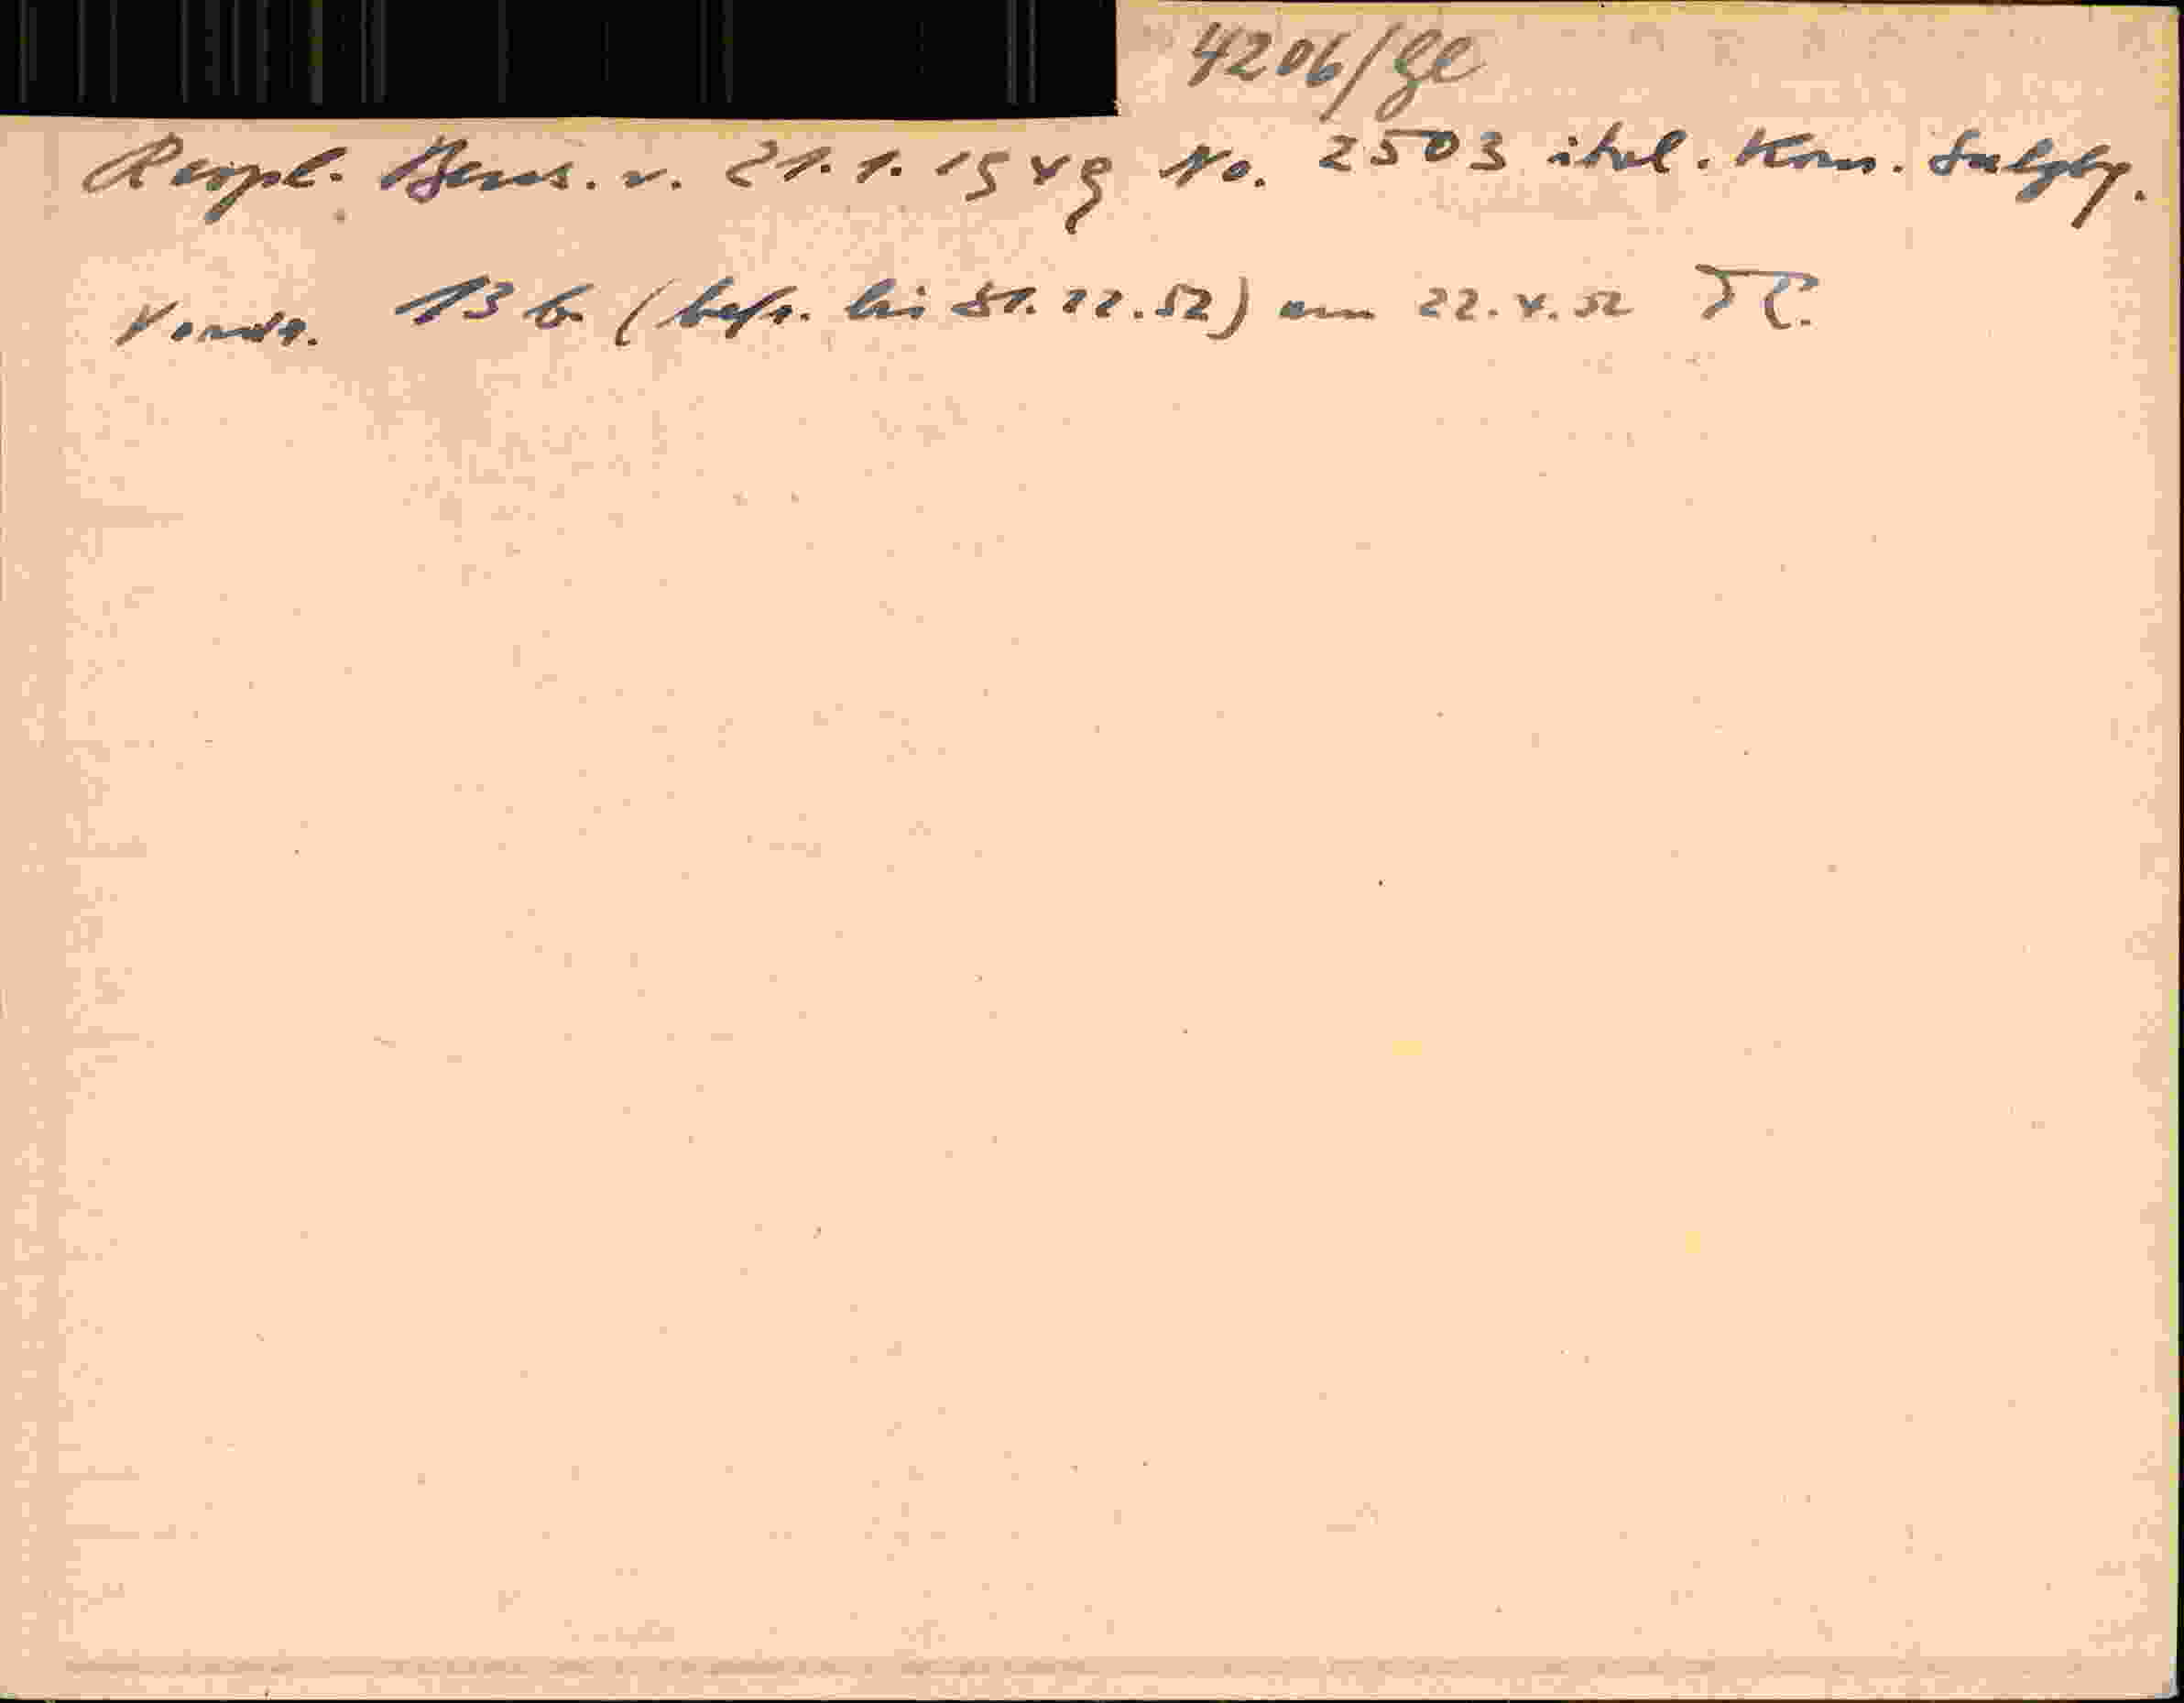 4206/Ge
Reispl. Bew. v. 21.1.1949 No. 2503 ital. Kons. Salzbg.
Vordr. 13 b (befr. bis 31.12.52) am 22.4.52